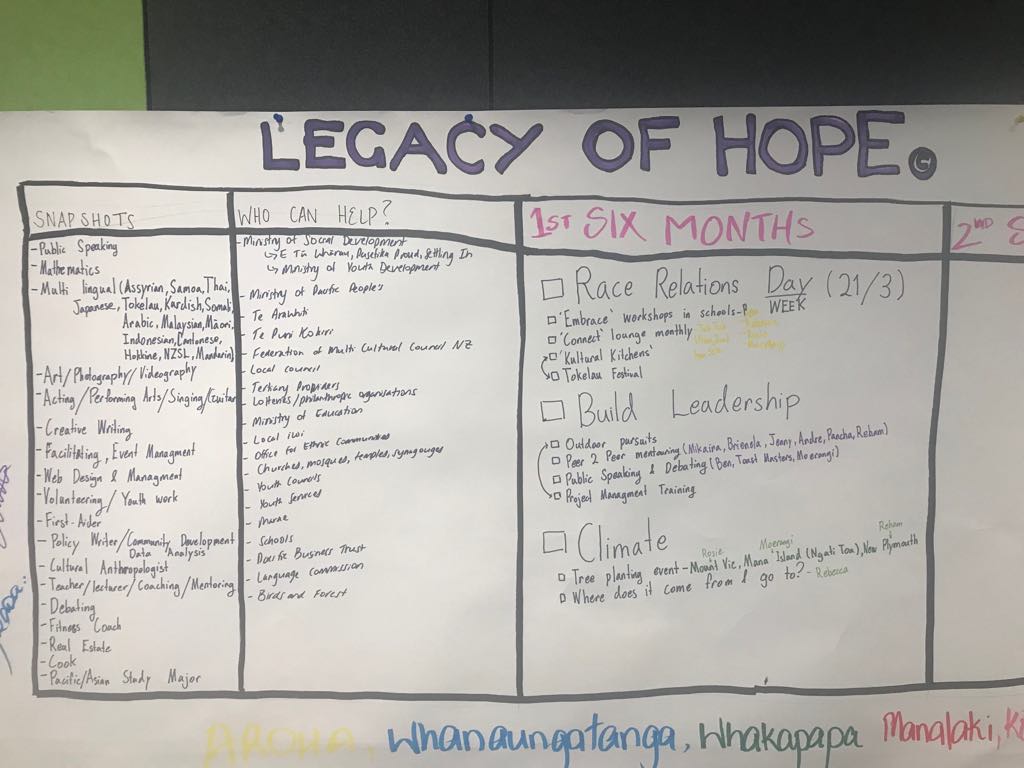 LEGACY OF HOPE.
SNAPSHOTS
-Public Speaking
-Mathematics
-Multi lingual (Assyrian, Samoa, Thai,
Japanese, Tokelau, Kardish, Somali
Arabic, Malaysian, Māori,
Indonesian, Cantonese,
Hokkine, NZSL, Mandarin)
-Art/Photography/Videography
-Acting/Performing Arts/Singing/Guitar
-Creative Writing
-Facilitating, Event Managment
-Web Design & Managment
-Volunteering/Youth work
-First-Aider
-Policy Writer/Community Development
Data Analysis
-Cultural Anthropologist
-Teacher/lecturer/Coaching/Mentoring
-Debating
-Fitness Coach
-Real Estate
-Cook
-Pacific/Asian Study Major
WHO CAN HELP?
-Ministry of Social Development
↳ E Tū Whānau, Pasefika Proud, Settling In
↳ Ministry of Youth Development
-Ministry of Pacific People's
-Te Arawhiti
-Te Puni Kokiri
-Federation of Multi Cultural Council NZ
-Local council
-Tertary Providers
-Lotteries/philanthropic organisations
-Ministry of Education
-Local iwi
-Office for Ethnic Communities
-Churches, mosques, temples, synagouges
-Youth Councils
-Youth Services
-Marae
-Schools
-Pacific Business Trust
-Language Commission
-Birds and Forest
1ST SIX MONTHS
Race Relations Day (21/3)
WEEK
'Embrace' workshops in schools-
'Connect' lounge monthly
'Kultural Kitchens'
Tokelau Festival
Build Leadership
Outdoor pursuits
Peer 2 Peer mentouring (Mikaira, Brienola, Jenny, Andre, Pancha, Reham)
Public Speaking & Debating (Ben, Toast Masters, Moerangi)
Project Managment Training
Climate
Reham
Rosie Moerangi
Tree planting event - Mount Vic, Mana Island (Ngati Toa), New Plymouth
Where does it come from & go to? - Rebecca
2ND S
AROHA, Whanaungatanga, Whakapapa Manaaki, Ki